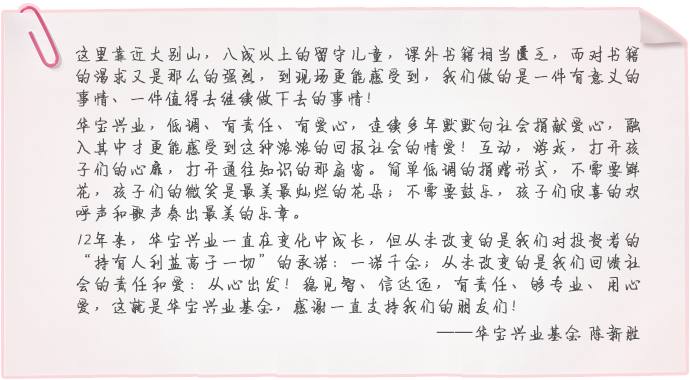 这里靠近大别山，八成以上的留守儿童，课外书籍相当匮乏，而对书籍
的渴求又是那么的强烈，到现场更能感受到，我们做的是一件有意义的
事情、一件值得去继续做下去的事情！
华宝兴业，低调、有责任、有爱心，连续多年默默向社会捐献爱心，融
入其中才更能感受到这种浓浓的回报社会的情爱！互动，游戏，打开孩
子们的心扉，打开通往知识的那扇窗。简单低调的捐赠形式，不需要鲜
花，孩子们的微笑是最美最灿烂的花朵；不需要鼓乐，孩子们欣喜的欢
呼声和歌声奏出最美的乐章。
12年来，华宝兴业一直在变化中成长，但从未改变的是我们对投资者的
“持有人利益高于一切”的承诺：一诺千金；从未改变的是我们回馈社
会的责任和爱：从心出发！稳见智、信达远，有责任、够专业、用心
爱，这就是华宝兴业基金，感谢一直支持我们的朋友们！
——华宝兴业基金 陈新胜